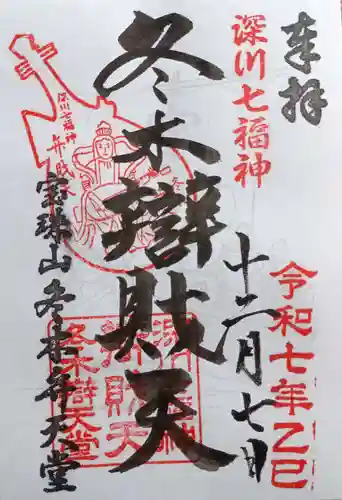 奉拝
深川七福神
令和七年乙巳
十二月七日
冬木辯財天
深川七福神
弁財天
宝珠山冬木弁天堂
深川七福神
冬木辯天堂
辯財天